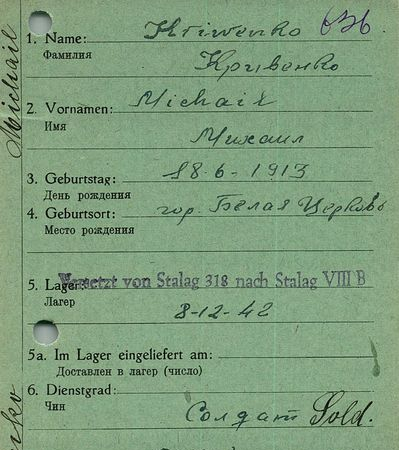 Michail
1. Name: Kriwenko
Фамилия
Кривенко
2. Vornamen: Michail
Имя
Михаил
3. Geburtstag: 18-6-1913
День рождения
4. Geburtsort: гор. Белая Церковь
Место рождения
5. Lager: Versetzt von Stalag 318 nach Stalag VIII B
Лагер
8-12-42
5a. Im Lager eingeliefert am:
Доставлен в лагер (число)
6. Dienstgrad:
Чин
Солдат Sold.